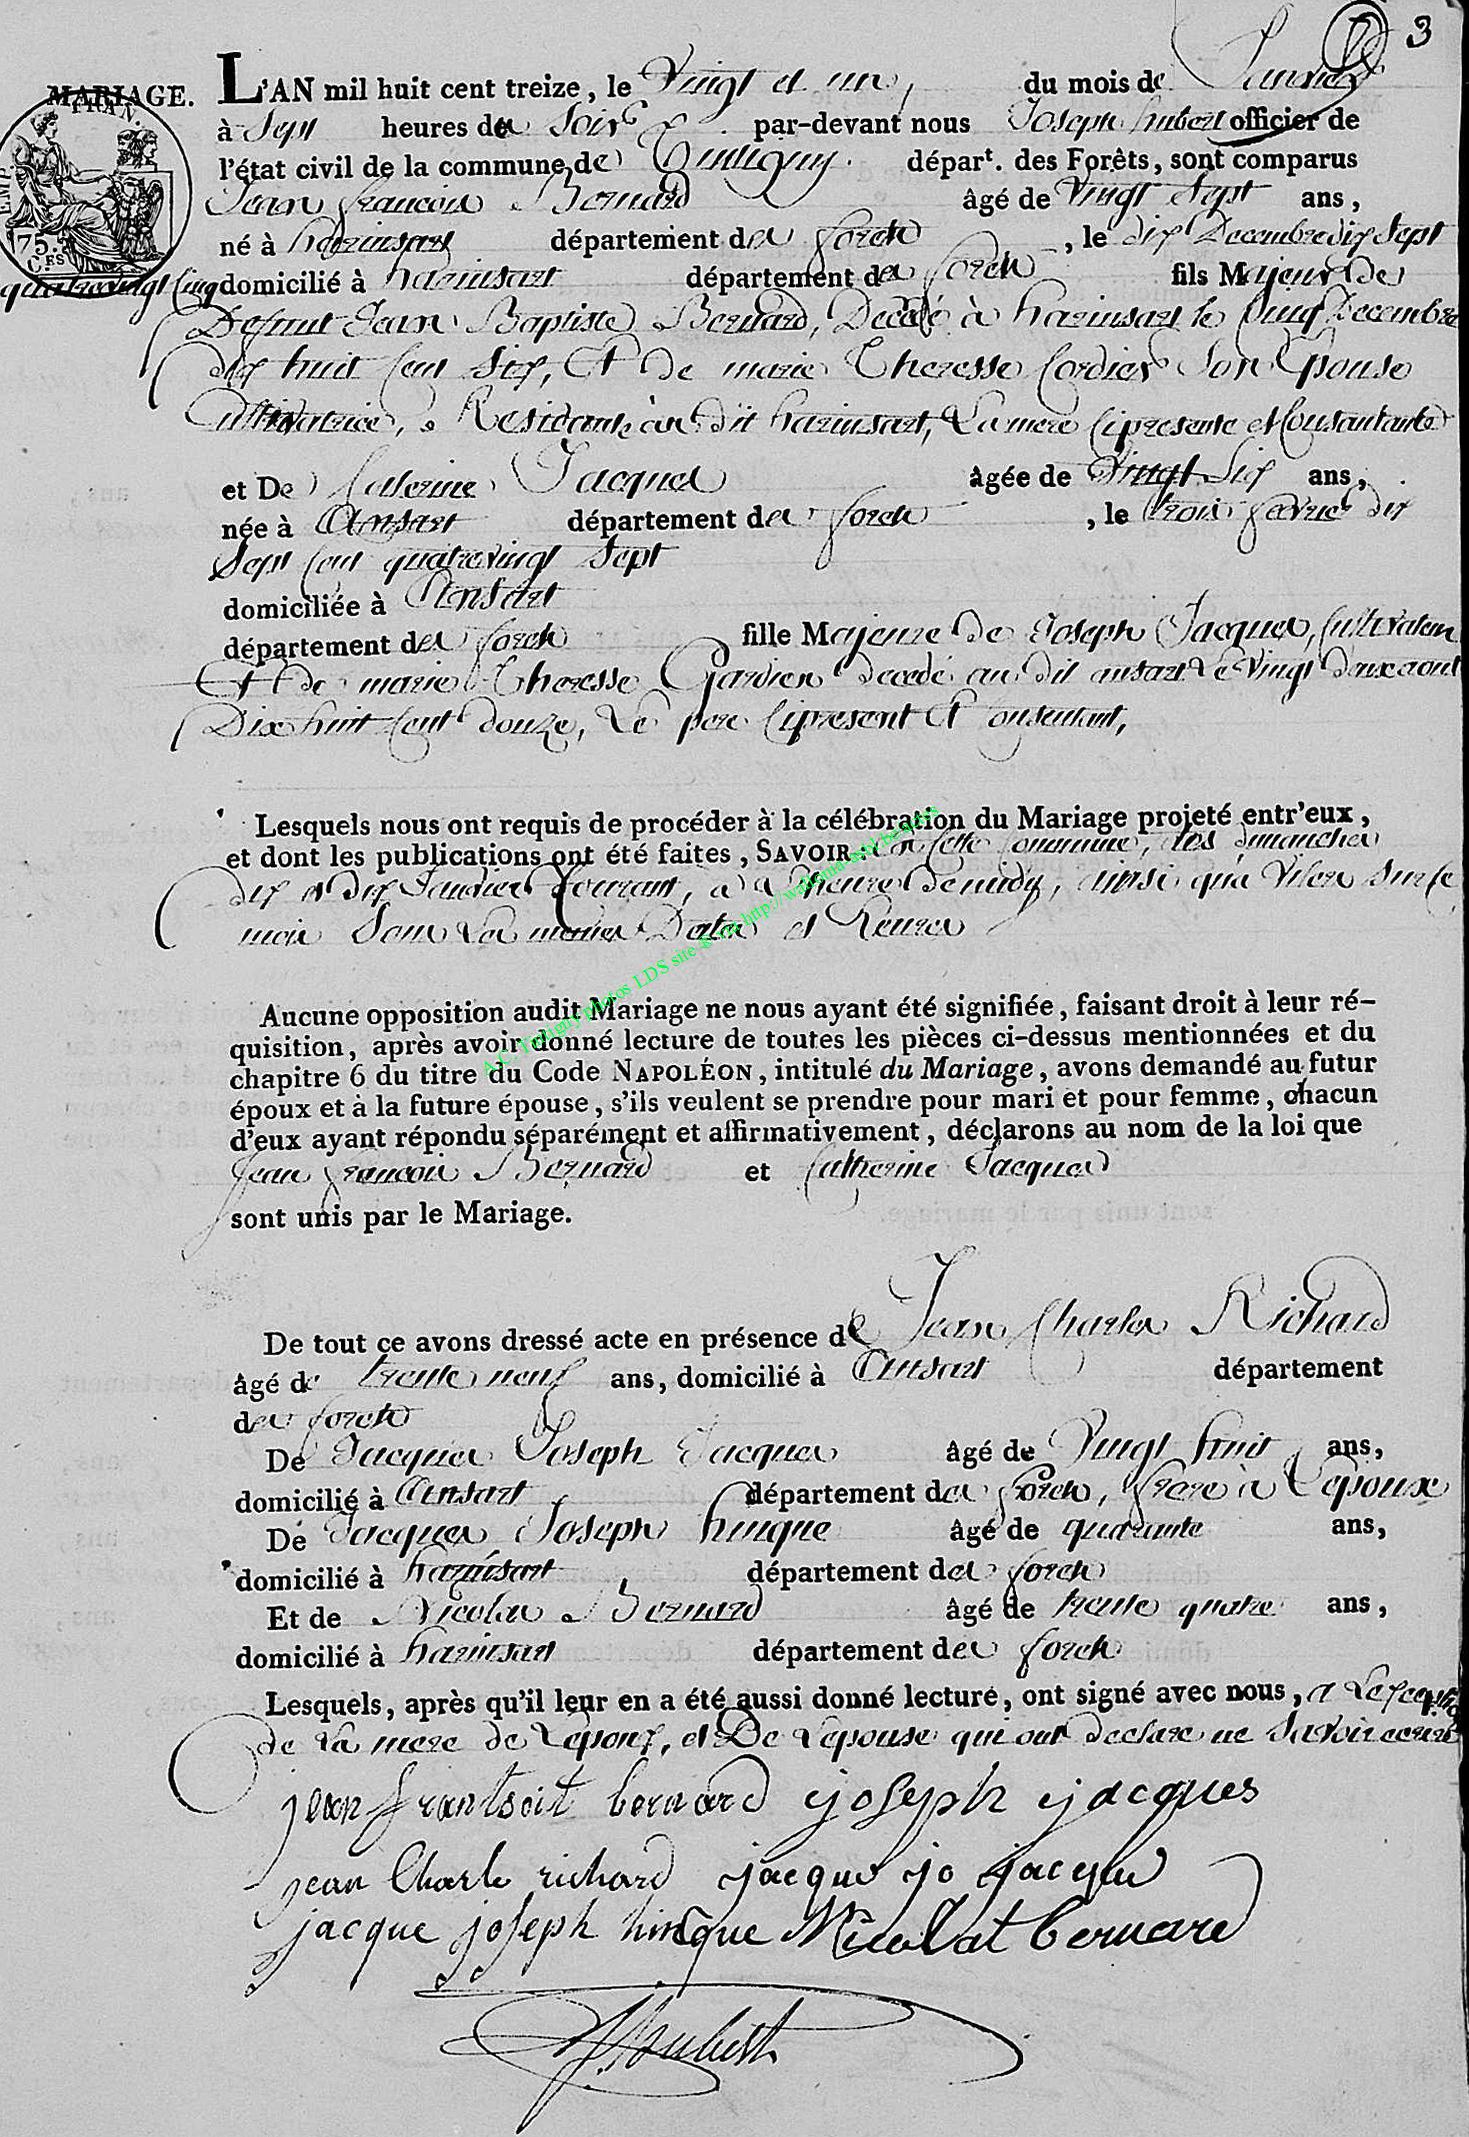 3
MARIAGE. L'AN mil huit cent treize, le Vingt et un, du mois de Janvier
à Sept heures du Soir par-devant nous Joseph hubert officier de
l'état civil de la commune de Tintigny. départ. des Forêts, sont comparus
Jean françois Bernard âgé de Vingt Sept ans,
né à harinsart département des forets, le dix Decembre dix Sept
quatrevingt Cinq domicilié à harinsart département des forets fils Majeur De
Defunt Jean Baptiste Bernard, Decédé à harinsart le Cinq Decembre
dix huit Cent Six, Et de marie Theresse Cordier Son Epouse
Cultivatrice, Residante au dit harinsart, La mere Cipresente et Consantante
et De Caterine Jacques âgée de Vingt Six ans,
née à Ansart département des forets, le trois fevrier dix
Sept Cent quatrevingt Sept
domiciliée à Ansart
département des forets fille Majeure de Joseph Jacques, Cultivateur
Et de marie Theresse Gardien decedé au dit ansart Le Vingt deux aout
Dix huit Cent douze, Le pere Cipresent Et Consentant,
Lesquels nous ont requis de procéder à la célébration du Mariage projeté entr'eux,
et dont les publications ont été faites, SAVOIR: en Cette Commune, les dimanches
dix et dix Janvier Courant, à L'heure de midy, ainsi qua Villers Sur Se
mois Sous Les memes Dates et heures
Aucune opposition audit Mariage ne nous ayant été signifiée, faisant droit à leur ré-
quisition, après avoir donné lecture de toutes les pièces ci-dessus mentionnées et du
chapitre 6 du titre du Code NAPOLÉON, intitulé du Mariage, avons demandé au futur
époux et à la future épouse, s'ils veulent se prendre pour mari et pour femme, chacun
d'eux ayant répondu séparément et affirmativement, déclarons au nom de la loi que
Jean françois Bernard et Catherine Jacques
sont unis par le Mariage.
De tout ce avons dressé acte en présence de Jean Charles Richard
âgé de trente neuf ans, domicilié à Ansart département
des forets
De Jacques Joseph Jacques âgé de Vingt huit ans,
domicilié à Ansart département des forets, frere à L'epouse
De Jacques Joseph hinque âgé de quarante ans,
domicilié à harinsart département des forets
Et de Nicolas Bernard âgé de trente quatre ans,
domicilié à harinsart département des forets
Lesquels, après qu'il leur en a été aussi donné lecture, ont signé avec nous, a Lexception
de La mere de L'epoux, et De L'epouse qui ont declaré ne Savoir ecrire
jean frantsoit bernard joseph jacques
jean Charle richard jacque jo jacque
jacque joseph hinque Nicolat bernard
J. hubert
A.C. Tintigny photos LDS site & via http://wallonia-asbl.be/actes
FRAN.
EMP.
75.
C.ES